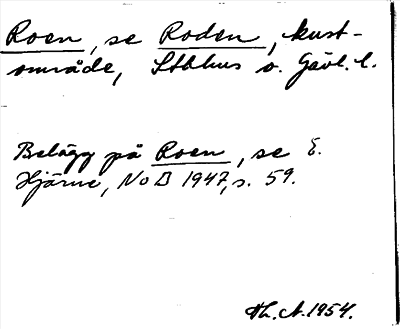 Roen, se Roden, kust-
område, Sthlms o. Gävl. l.
Belägg på Roen, se E.
Hjärne, NoB 1947, s. 59.
Hh. A. 1954.